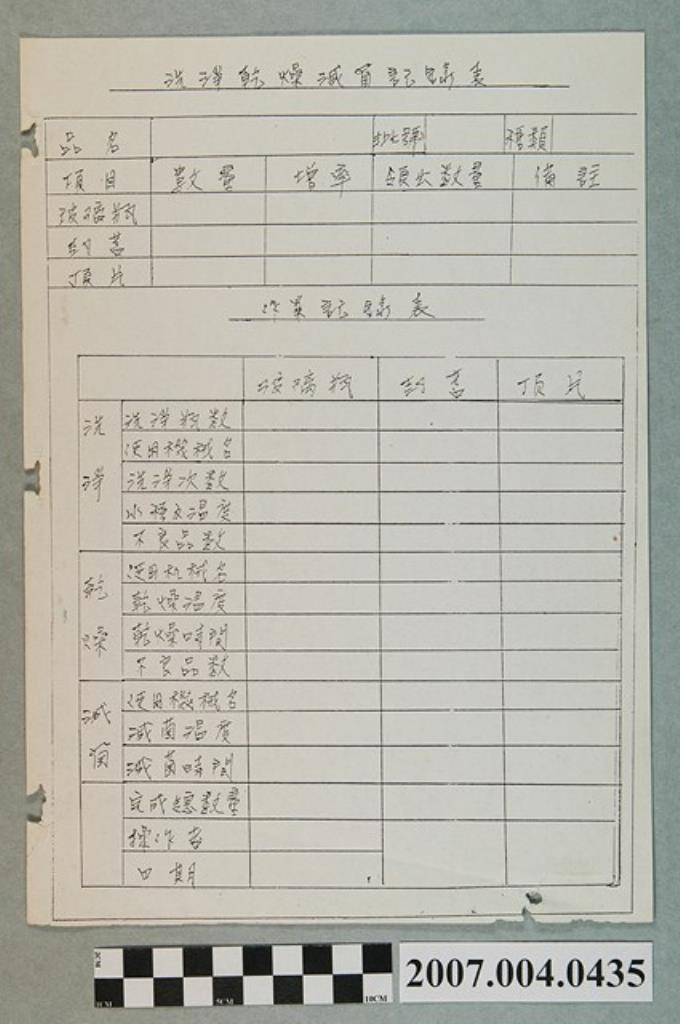 洗淨乾燥滅菌記錄表
品名 批號 種類
項目 數量 增率 領出數量 備註
玻璃瓶
封蓋
頂片
作業記錄表
玻璃瓶 封蓋 頂片
洗淨
洗淨瓶數
使用機械名
洗淨次數
水種及温度
不良品數
乾燥
使用机械名
乾燥温度
乾燥時間
不良品數
滅菌
使用機械名
滅菌温度
滅菌時間
完成總數量
操作者
日期
1CM 5CM 10CM
2007.004.0435